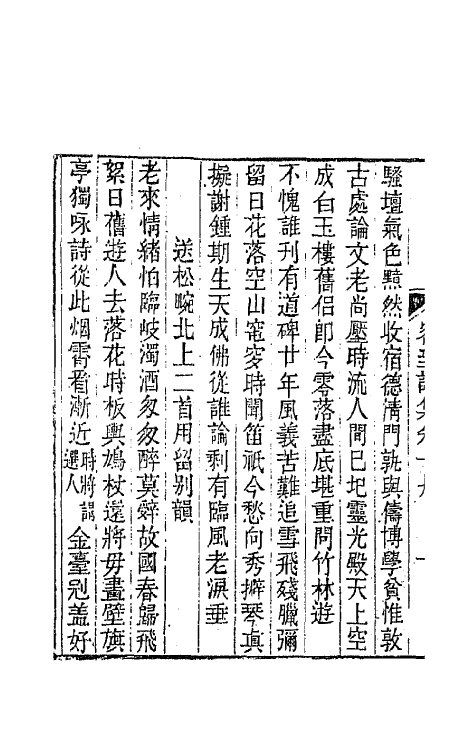 騷壇氣色黯然收宿德清門孰與儔博學貧惟敦
古處論文老尚壓時流人間已圯靈光殿天上空
成白玉樓舊侶卽今零落盡底堪重問竹林遊
不愧誰刊有道碑廿年風義苦難追雪飛殘臘彌
留日花落空山窀穸時聞笛祇今愁向秀擗琴眞
擬謝鍾期生天成佛從誰論剩有臨風老淚垂
送松畹北上二首用留別韻
老來情緒怕臨歧濁酒匆匆醉莫辤故國春歸飛
絮日舊遊人去落花時板輿鳩杖遠將毋畫壁旗
亭獨咏詩從此烟霄看漸近時將謁選人金臺冠蓋好